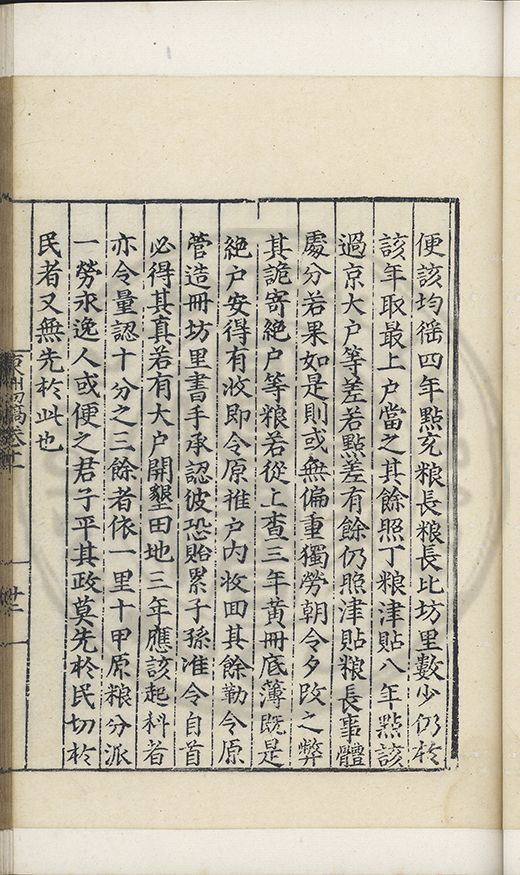 便該均徭四年點充粮長粮長比坊里數少仍於
該年取最上户當之其餘照丁粮津貼八年點該
過京大户等差若點差有餘仍照津貼粮長事體
處分若果如是則或無偏重獨勞朝令夕改之弊
其詭寄絶户等粮若從上查三年黃冊底簿既是
絶户安得有收即令原推户内收回其餘勒令原
管造冊坊里書手承認彼恐貽累子孫准令自首
必得其真若有大户開墾田地三年應該起科者
亦令量認十分之三餘者依一里十甲原粮分派
一勞永逸人或便之君子平其政莫先於民切於
民者又無先於此也
東洲初稿卷十一